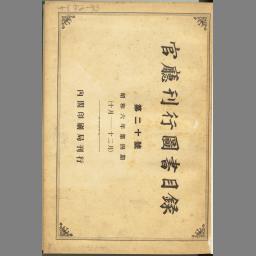 官廳刊行圖書目錄
第二十號
昭和六年第四期
(十月——十二月)
內閣印刷局刊行